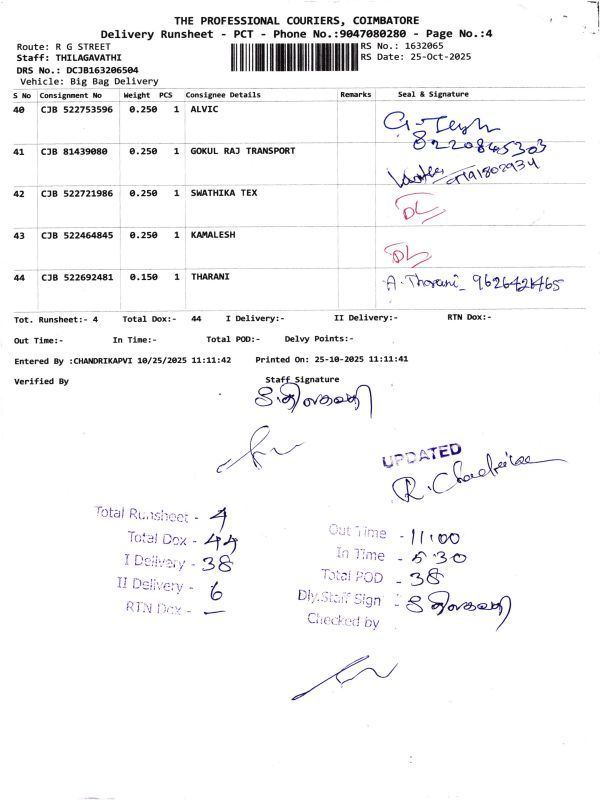 THE PROFESSIONAL COURIERS, COIMBATORE
Delivery Runsheet - PCT - Phone No.:9047080280 - Page No.:4
Route: R G STREET
RS No.: 1632065
Staff: THILAGAVATHI
RS Date: 25-Oct-2025
DRS No.: DCJB163206504
Vehicle: Big Bag Delivery
S No Consignment No Weight PCS Consignee Details Remarks Seal & Signature
40 CJB 522753596 0.250 1 ALVIC
8220845303
41 CJB 81439080 0.250 1 GOKUL RAJ TRANSPORT
42 CJB 522721986 0.250 1 SWATHIKA TEX DL
43 CJB 522464845 0.250 1 KAMALESH DL
44 CJB 522692481 0.150 1 THARANI A. Tharani - 9626421465
Tot. Runsheet:- 4 Total Dox:- 44 I Delivery:- II Delivery:- RTN Dox:-
Out Time:- In Time:- Total POD:- Delvy Points:-
Entered By :CHANDRIKAPVI 10/25/2025 11:11:42 Printed On: 25-10-2025 11:11:41
Verified By Staff Signature
UPDATED
Total Runsheet - 4
Total Dox - 44
I Delivery - 38
II Delivery - 6
RTN Dox - —
Out Time - 11:00
In Time - 5.30
Total POD - 38
Dly.Staff Sign -
Checked by